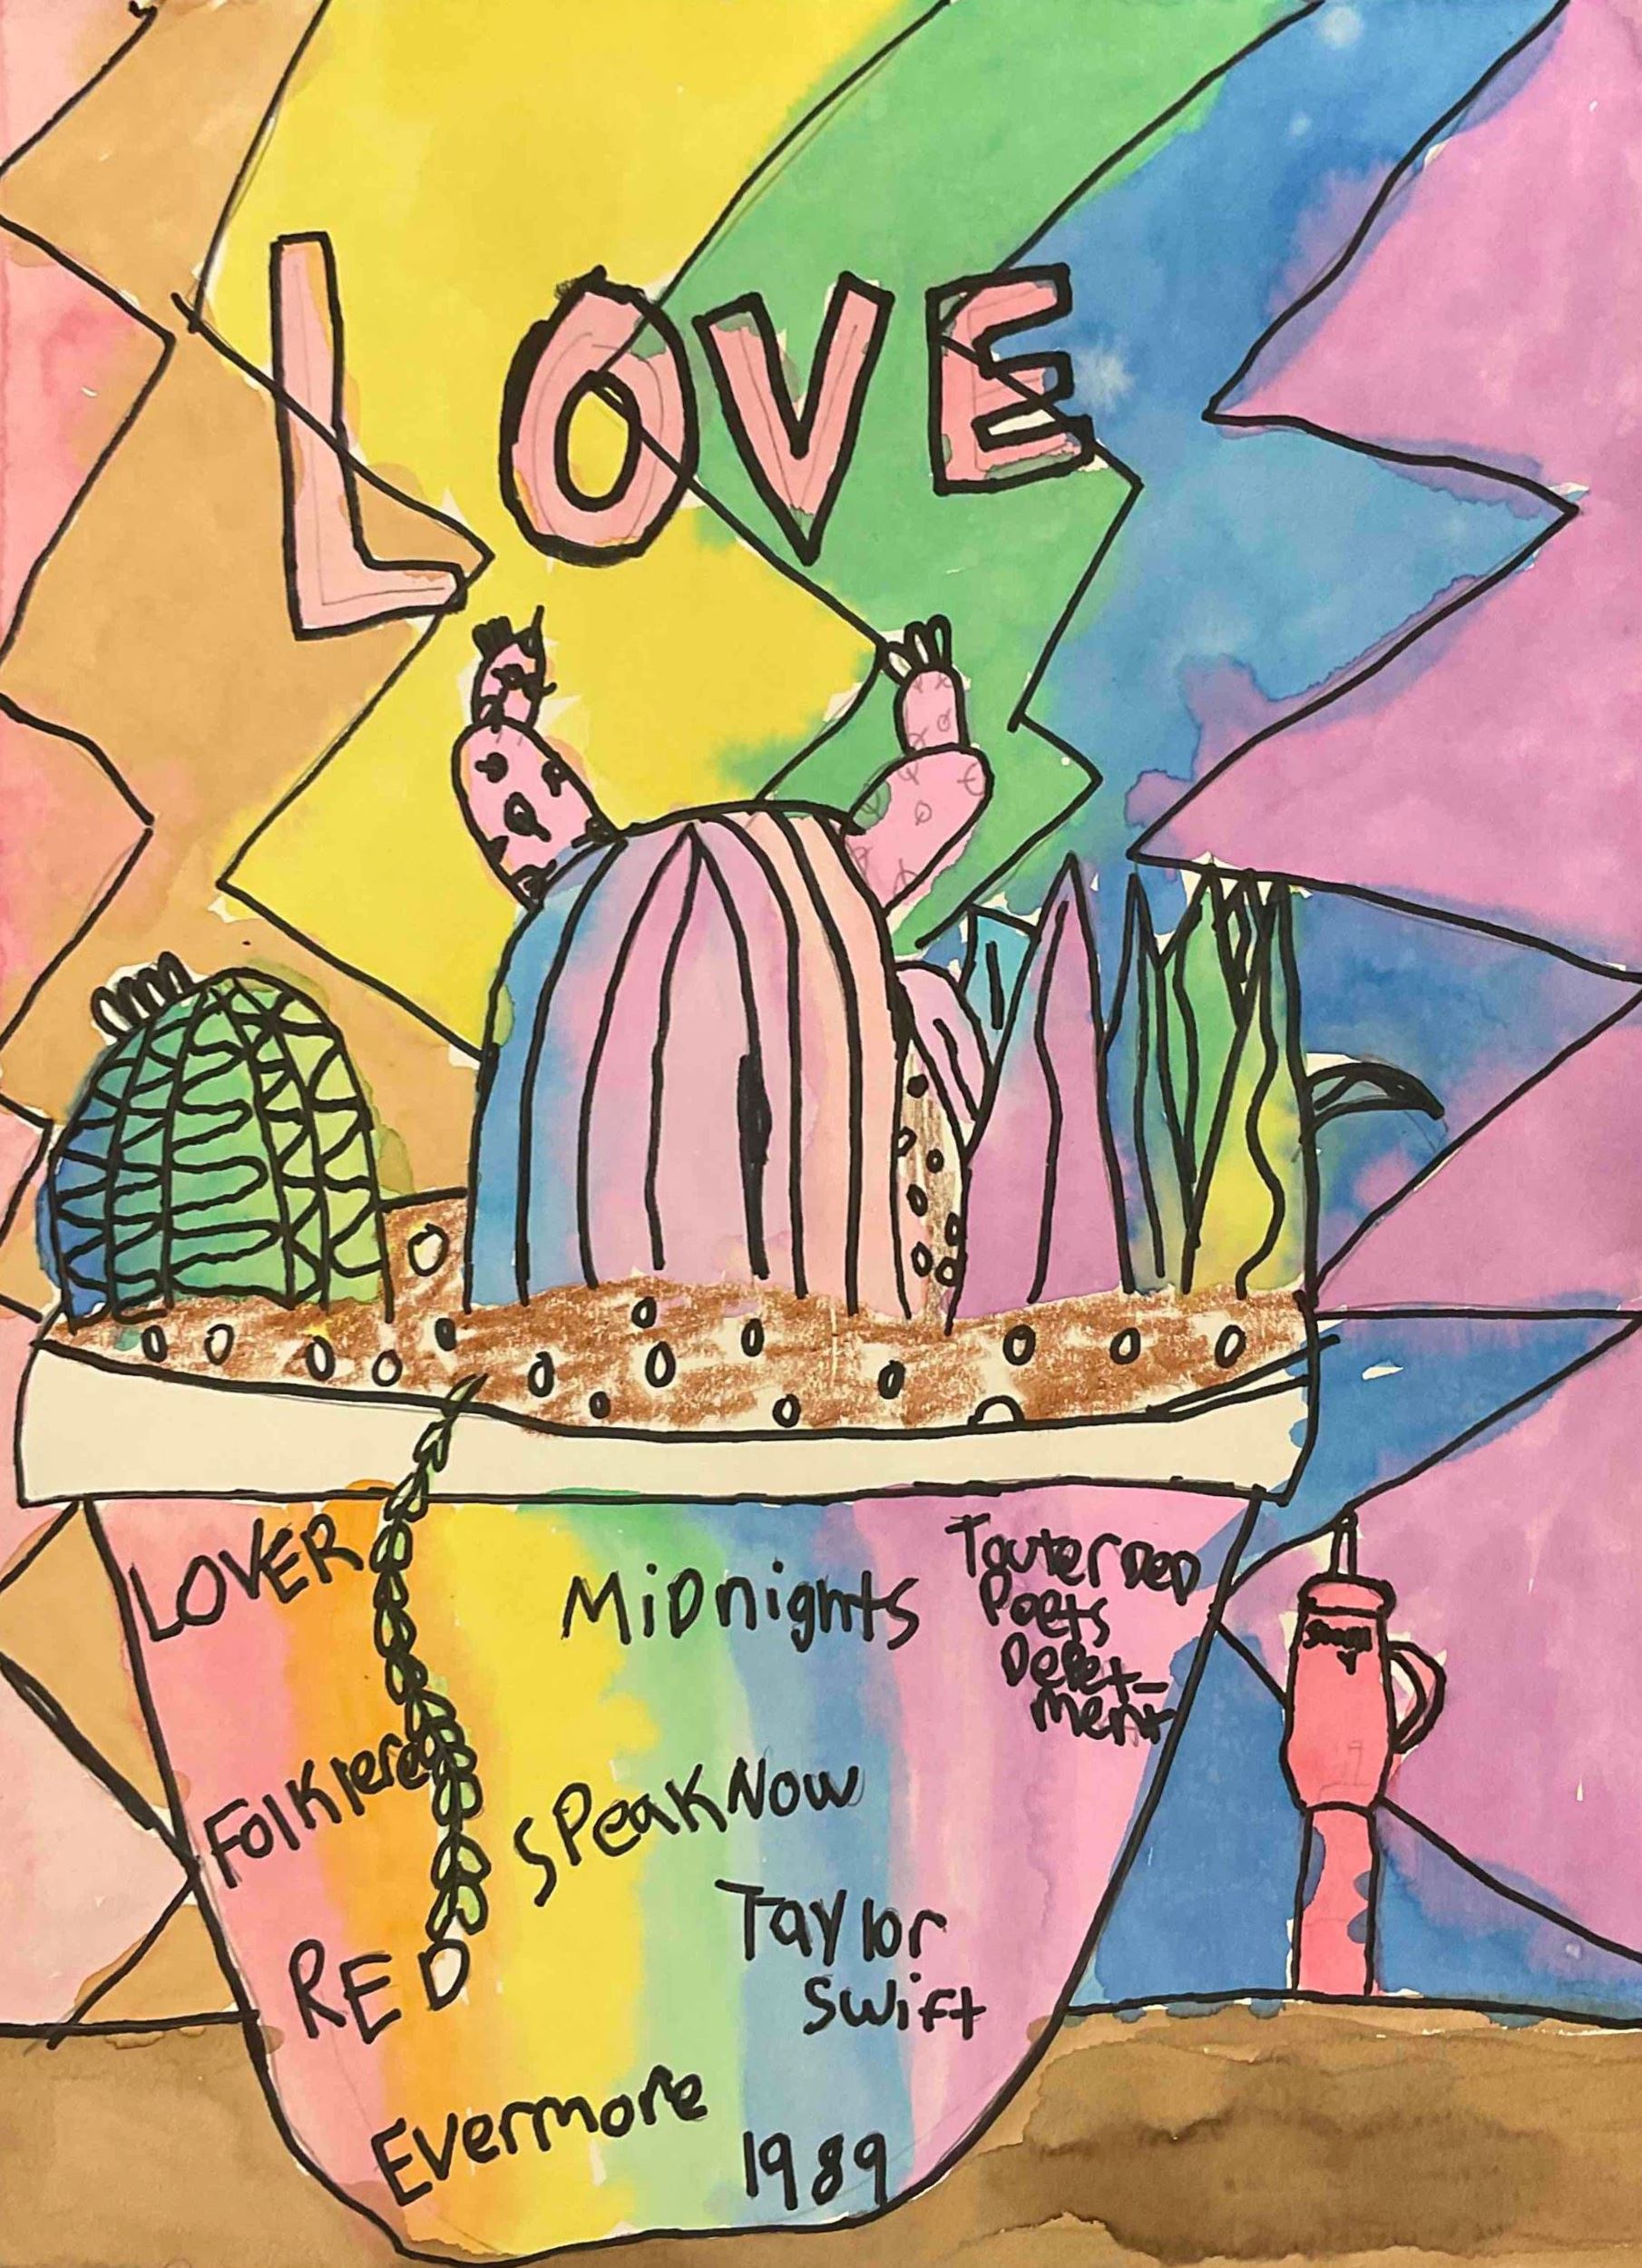 LOVE
LOVER
MiDnights
TouterDeD
Poets
Depet-
ment
Folklere
SPeak Now
RED
Taylor
Swift
Evermore
1989